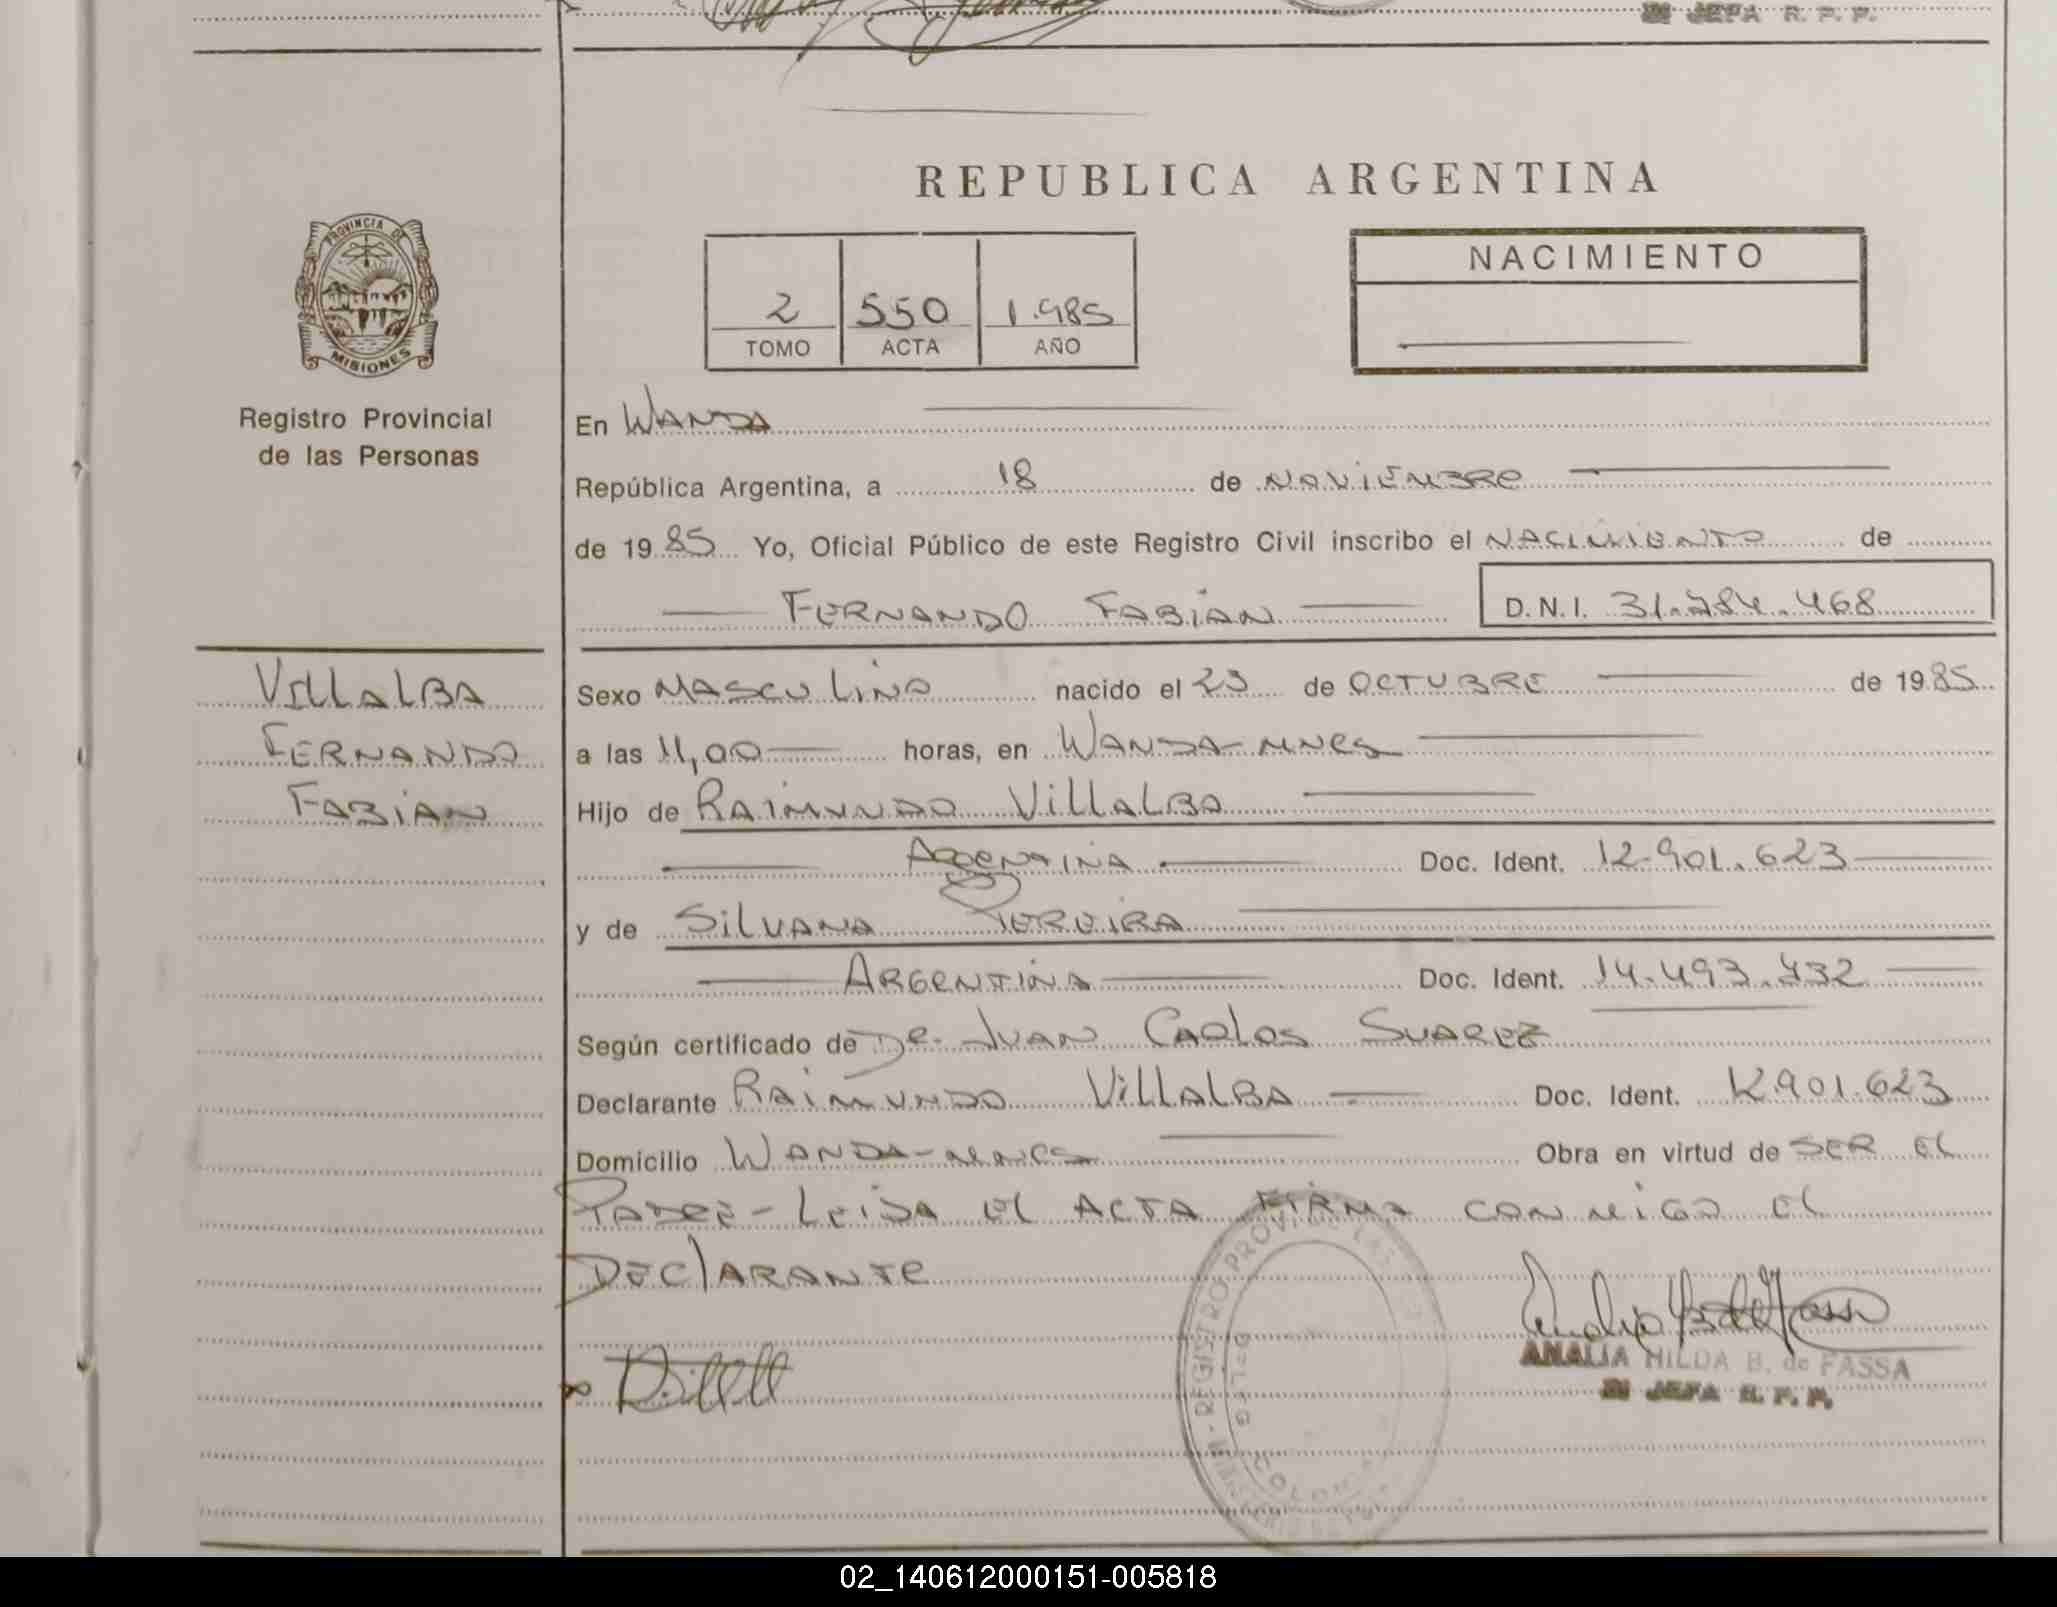 JEFA R. P. P.
REPUBLICA ARGENTINA
PROVINCIA DE
MISIONES
Registro Provincial
de las Personas
2 550 1.985
TOMO ACTA AÑO
NACIMIENTO
En WANDA
República Argentina, a 18 de NOVIEMBRE
de 1985 Yo, Oficial Público de este Registro Civil inscribo el NACIMIENTO de
FERNANDO FABIAN D.N.I. 31.784.468
VILLALBA
FERNANDO
FABIAN
Sexo MASCULINO nacido el 23 de OCTUBRE de 1985
a las 11,00 horas, en WANDA-MNES
Hijo de RAIMUNDO VILLALBA
ARGENTINA Doc. Ident. 12.901.623
y de SILVANA PEREIRA
ARGENTINA Doc. Ident. 14.493.732
Según certificado de DR. JUAN CARLOS SUAREZ
Declarante RAIMUNDO VILLALBA Doc. Ident. 12.901.623
Domicilio WANDA-MNES Obra en virtud de SER EL
PADRE - LEIDA EL ACTA FIRMA CONMIGO EL
DECLARANTE
REGISTRO PROVI LAS
ANALIA HILDA B. de FASSA
JEFA R. P. P.
02_140612000151-005818